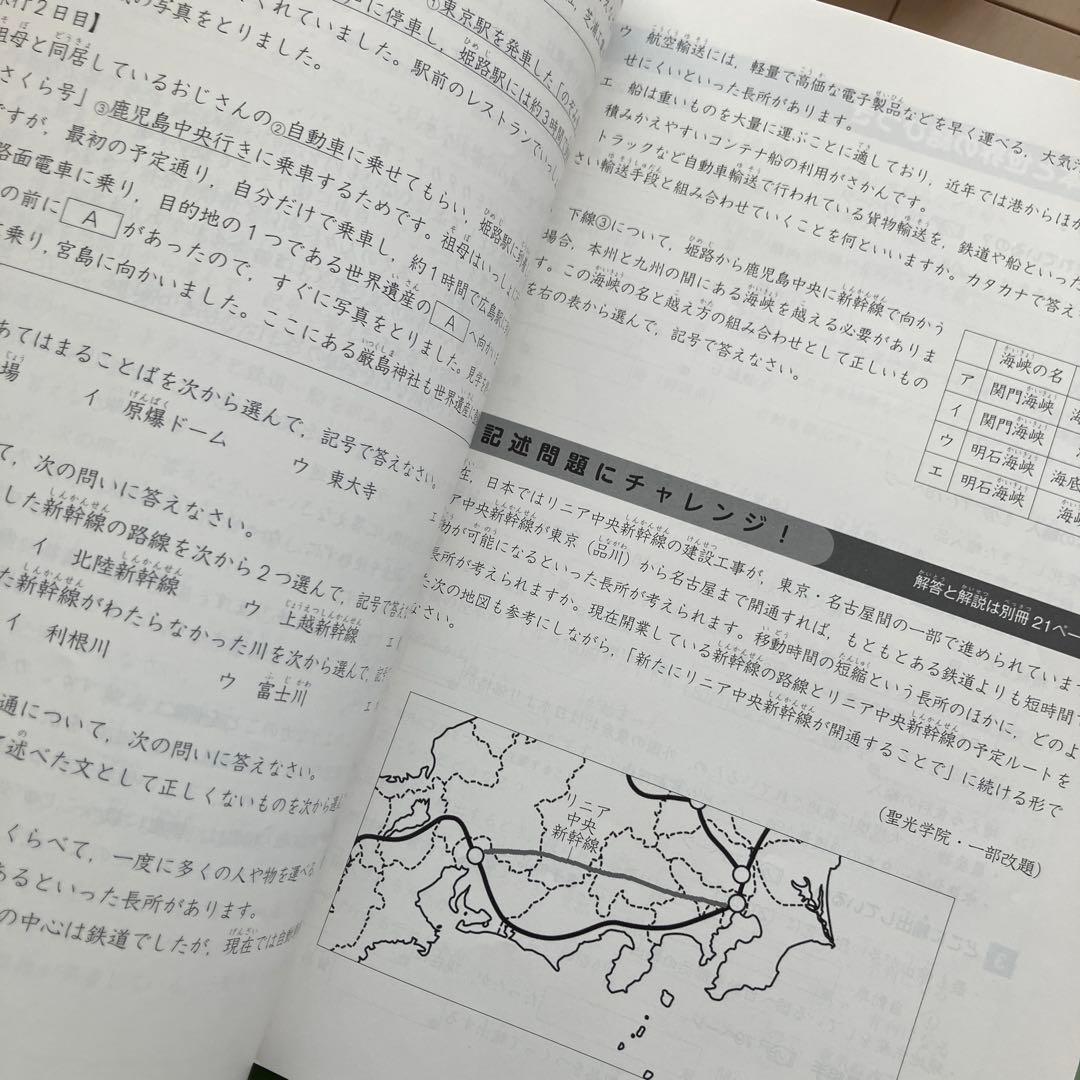 旅行2日目】
の写真をとりました。
くれていました。駅前のレストランでいっし
①東京駅を発車した「のぞみ
に停車し、姫路駅には約3時間
祖母と同居しているおじさんの②自動車に乗せてもらい、姫路駅に
さくら号」③鹿児島中央行きに乗車するためです。祖母はいっしょに
ですが、最初の予定通り、自分だけで乗車し、約1時間で広島駅に
路面電車に乗り、目的地の1つである世界遺産の A へ向か
の前に A があったので、すぐに写真をとりました。見学
乗り、宮島に向かいました。ここにある厳島神社も世界遺産に
あてはまることばを次から選んで、記号で答えなさい。
場 イ 原爆ドーム ウ 東大寺
て、次の問いに答えなさい。
した新幹線の路線を次から2つ選んで、記号で答え
イ 北陸新幹線 ウ 上越新幹線
た新幹線がわたらなかった川を次から選んで、記号
イ 利根川 ウ 富士川
通について、次の問いに答えなさい。
て述べた文として正しくないものを次から選
くらべて、一度に多くの人や物を運べる
あるといった長所があります。
の中心は鉄道でしたが、現在では自動
ウ 航空輸送には、軽量で高価な電子製品などを早く運べる、大気
せにくいといった長所があります。
エ 船は重いものを大量に運ぶことに適しており、近年では港からほか
積みかえやすいコンテナ船の利用がさかんです。
トラックなど自動車輸送で行われている貨物輸送を、鉄道や船といった
さい輸送手段と組み合わせていくことを何といいますか。カタカナで答え
下線③について、姫路から鹿児島中央に新幹線で向かう
場合、本州と九州の間にある海峡を越える必要がありま
す。この海峡の名と越え方の組み合わせとして正しいもの
を右の表から選んで、記号で答えなさい。
海峡の名
ア 関門海峡
イ 関門海峡
ウ 明石海峡 海底
エ 明石海峡
記述問題にチャレンジ！
解答と解説は別冊21ペー
在、日本ではリニア中央新幹線の建設工事が、東京・名古屋間の一部で進められていま
ア中央新幹線が東京（品川）から名古屋まで開通すれば、もともとある鉄道よりも短時間
動が可能になるといった長所が考えられます。移動時間の短縮という長所のほかに、どのよ
長所が考えられますか。現在開業している新幹線の路線とリニア中央新幹線の予定ルートを
た次の地図も参考にしながら、「新たにリニア中央新幹線が開通することで」に続ける形で
なさい。
（聖光学院・一部改題）
リニア
中央
新幹線